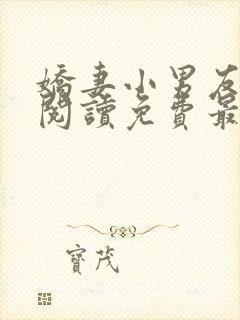 嬌妻小男友
閱讀免費最
寶茂